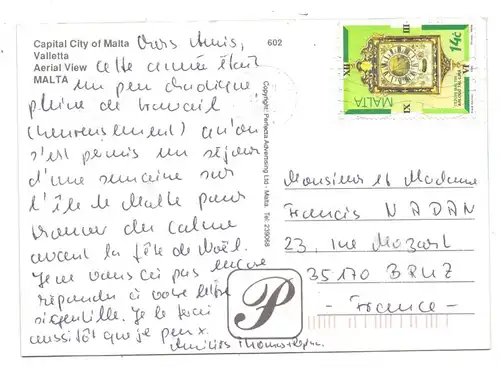 Capital City of Malta
Valletta
Aerial View
MALTA
602
Chers Amis,
cette année était
un peu chaotique
pleine de travail
(heureusement) qu'on
s'est permis un séjour
d'une semaine sur
l'île de Malte pour
trouver du calme
avant la fête de Noël.
Je ne vous ai pas encore
répondu à votre lettre
si gentille. Je le ferai
aussitôt que je peux.
Amitiés
Copyright: Perfecta Advertising Ltd. Malta. Tel: 230068
P
14c
MALTA
XII
III
VI
IX
Monsieur et Madame
Francis NADAN
23, rue Mozart
35170 BRUZ
- France -